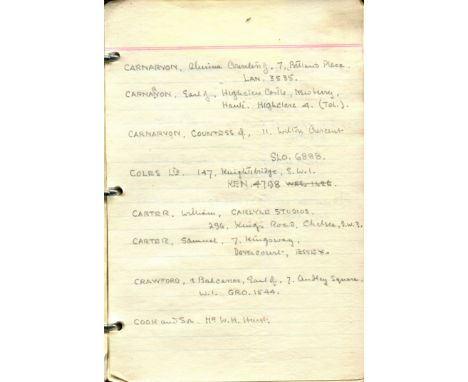 CARNARVON, Almina Countess of. 7, Portland Place.
LAN. 3535.
CARNARVON, Earl of, Highclere Castle, Newberry,
Hants. Highclere 4. (Tol.).
CARNARVON, COUNTESS of, 11. Wilton Crescent
SLO. 6888.
COLES Ltd. 147, Knightsbridge, S.W.1.
KEN. 4798
CARTER, William, CARLYLE STUDIOS.
296, King's Road, Chelsea, S.W.3.
CARTER, Samuel, 7. Kingsway,
Dovercourt, ESSEX.
CRAWFORD, & Balcarres, Earl of, 7. Audley Square,
W.1. GRO. 1544.
COOK and Son. Mr W.H.